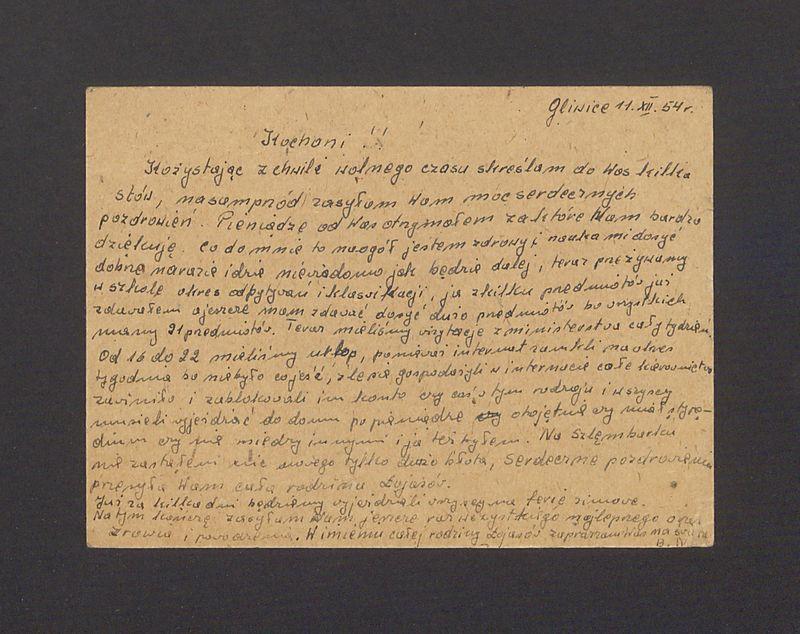 Gliwice 11.XII.54r.
Kochani !!
Kożystając z chwili wolnego czasu skreślam do Was kilka
słów, nasampszód zasyłam Wam moc serdecznych
pozdrowień. Pieniądze od Was otrzymałem za które Wam bardzo
dziękuję. Co do mnie to naogół jestem zdrowy i nauka mi dosyć
dobrze narazie idzie niewiadomo jak będzie dalej, teraz przeżywamy
w szkole okres odpytywań i klasyfikacji, ja z kilku przedmiotów już
zdawałem a jeszcze mam zdawać dosyć dużo przedmiotów bo wszystkich
mamy 21 przedmiotów. Teraz mieliśmy wizytację z ministerstwa cały tydzień.
Od 16 do 22 mieliśmy urlop, ponieważ internat zamkli na okres
tygodnia bo niebyło co jeść, źle się gospodarzyli w internacie całe kierownictwo
zawiniło i zablokowali im konto czy coś w tym rodzaju i wszyscy
musieli wyjeżdzać do domu po pieniądze obojętnie czy miał
czy nie miedzy innymi i ja też byłem. Na Szlembarku
nie zastałem nic nowego tylko dużo błota, serdeczne pozdrowienia
przesyła Wam cała rodzina Łojasów.
Już za kilka dni będziemy wyjeżdżali wszyscy na ferie zimowe.
Na tym kończę zasyłam Wam jeszcze raz wszystkiego najlepszego oraz
zdrowia i powodzenia. W imieniu całej rodziny Łojasów zapraszam Was na